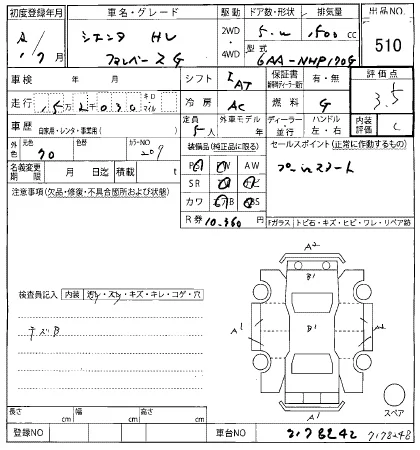 初度登録年月 車名・グレード 駆動 ドア数・形状 排気量 出品NO.
シエンタ HV 2WD ・ 4WD 5.W 1500 cc 510
1/7月 ファンベースG 型式 6AA-NHP170G
車検 年 月 シフト IAT 保証書 評価点 3.5
走行 キロ マイル 冷房 AC 燃料 G
車歴 自家用・レンタ・事業用( ) 定員 5人 外車モデル 年 ディーラー・並行 ハンドル 左・右 内装評価 C
外色 元色 クロ 色替 カラーNO 209 装備品(純正品に限る) セールスポイント(正常に作動するもの)
名義変更期限 月 日迄 積載 t AW プッシュスタート
注意事項(欠品・修復・不具合箇所および状態) SR
カワ
R券 10,360円 Fガラス トビ石・キズ・ヒビ・ワレ・リペア跡
A2
B1
検査員記入 内装 汚レ・スレ・キズ・キレ・コゲ・穴
A1 B1
キズB
A1
スペア
長さ cm 幅 cm 高さ cm
登録NO 車台NO 7178242 7178248